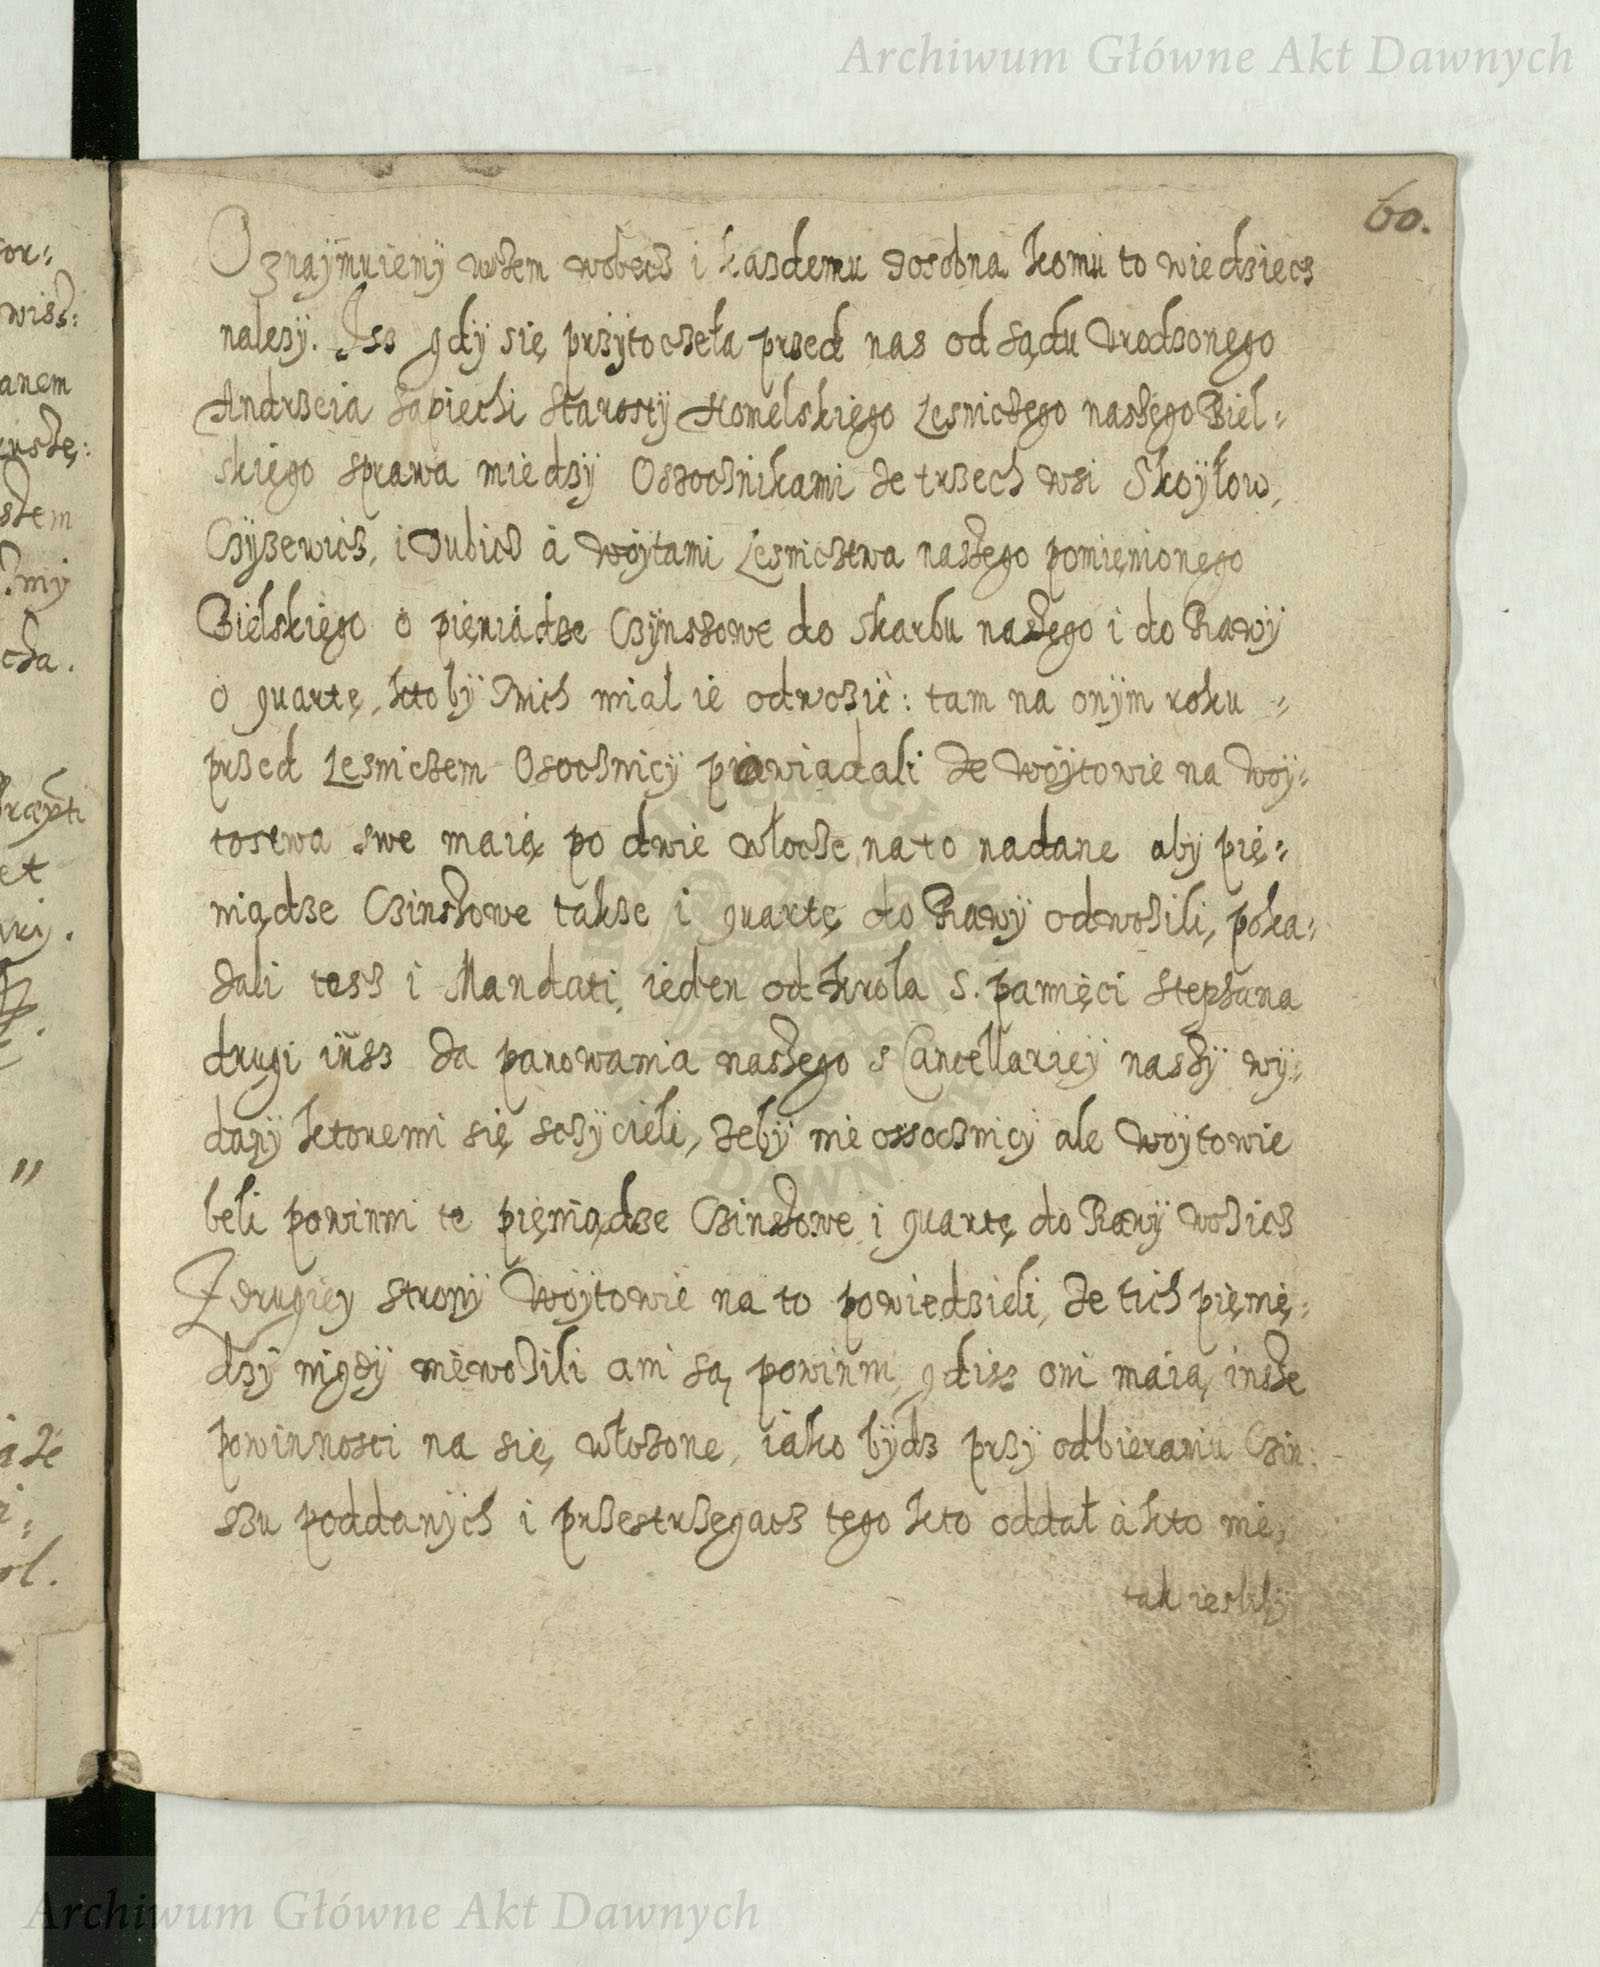 Archiwum Główne Akt Dawnych
60.
Oznaymuiemy wszem wobecz i kazdemu zosobna komu to wiedziecz
nalezy. Isz gdy się przytoczeła przed nas od sądu Urodzonego
Andrzeia Sapiechi Starosty Homelskięgo Lesniczęgo naszęgo Biel=
skięgo sprawa miedzy Osocznikami ze trzech wsi Skoyłow,
Czyzewicz, i Dubicz á Woytami Lesnicztwa naszego pomięnionego
Bielskięgo o pięniądze Czynszowe do skarbu naszęgo i do Rawy
o quartę, ktoby znich miał ie odwozić: tam na onym roku =
przed Lesniczem Osocznicy powiadali ze Woytowie na Woy=
tostwa swe maią po dwie włocze na to nadane aby pię=
niądze Czinszowe takze i quartę do Rawy odwozili, poka=
zali tesz i Mandati, ieden od krola S. pamięci Stephana
drugi insz za panowania naszego s Cancellariey naszy wy=
dany ktoremi się sczycieli, zeby nie ossocznicy ale Woytowie
beli powinni te pięniądze Czinszowe i quartę do Rawy wozicz
Z drugiey strony Woytowie na to powiedzieli, ze tich pięnię=
dzy nigdy niewozili ani są powinni, gdisz oni maią insze
powinnosci na się włozone, iako bydz przy odbieraniu Czin:
szu poddanych i przestrzęgacz tęgo kto oddał á kto nie,
tak iesliby
or=
wisz:
anem
szem
cza.
et
Archiwum Główne Akt Dawnych